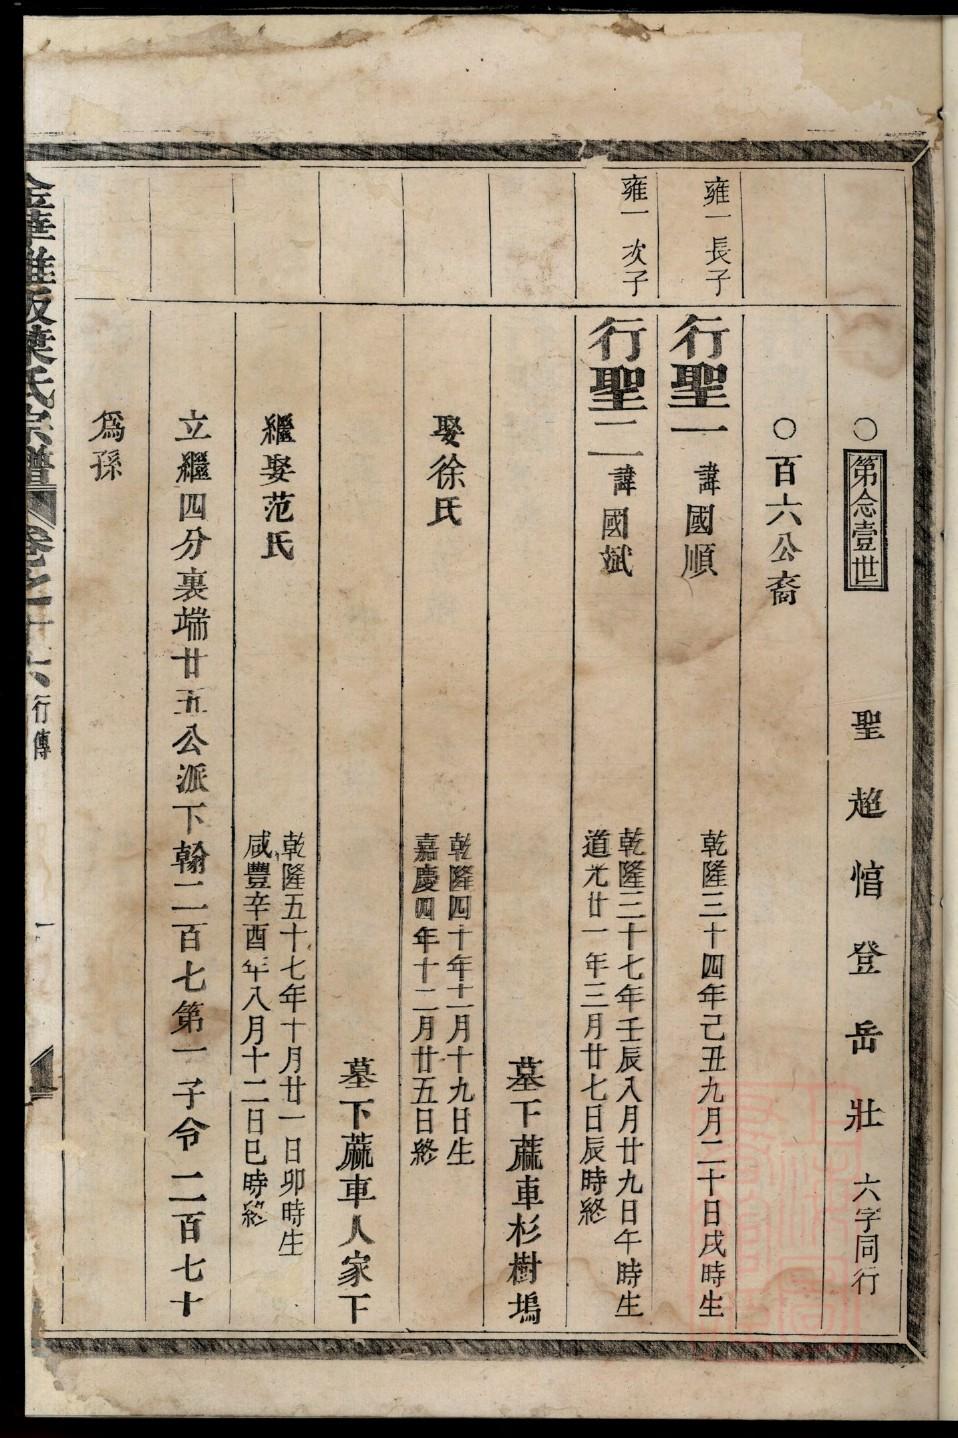 ○第念壹世 聖超愭登岳壯 六字同行
○百六公裔
雍一長子
行聖一 諱國順 乾隆三十四年己丑九月二十日戌時生
雍一次子
行聖二 諱國斌 乾隆三十七年壬辰八月廿九日午時生
道光廿一年三月廿七日辰時終
墓下蔴車杉樹塢
娶徐氏 乾隆四十年十一月十九日生
嘉慶四年十二月廿五日終
墓下蔴車人家下
繼娶范氏 乾隆五十七年十月廿一日卯時生
咸豐辛酉年八月十二日巳時終
立繼四分裏端廿五公派下翰二百七第一子令二百七十
爲孫
葉氏宗譜 卷之十六 行傳 一